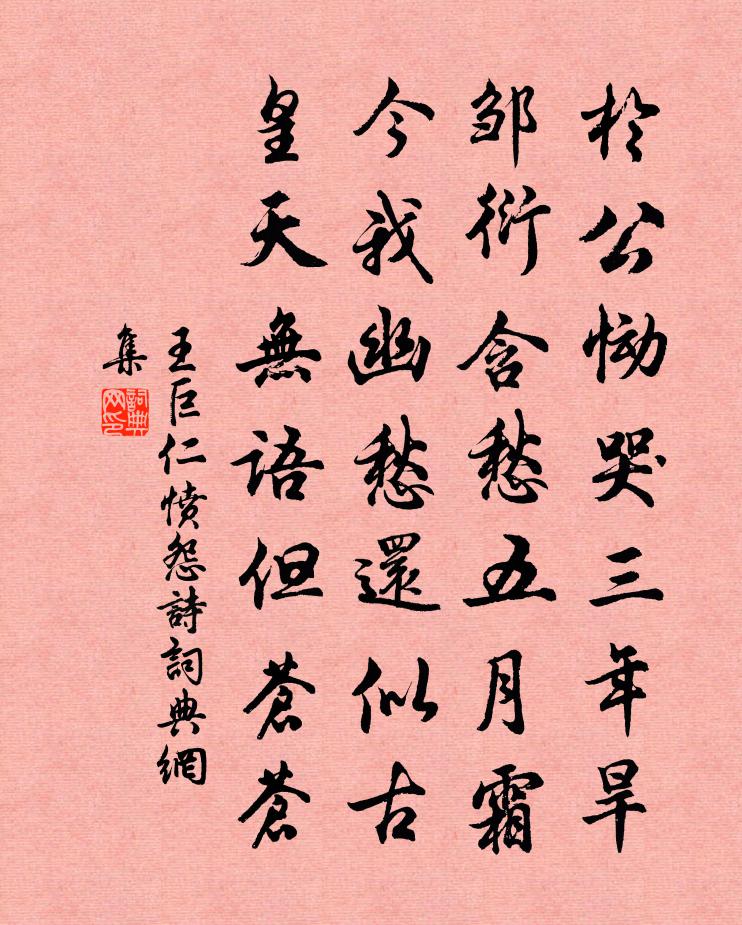 於公恸哭三年旱
邹衍含愁五月霜
今我幽愁還似古
皇天無語但蒼蒼
王巨仁憤怨詩詞典網
集
詞典
网印